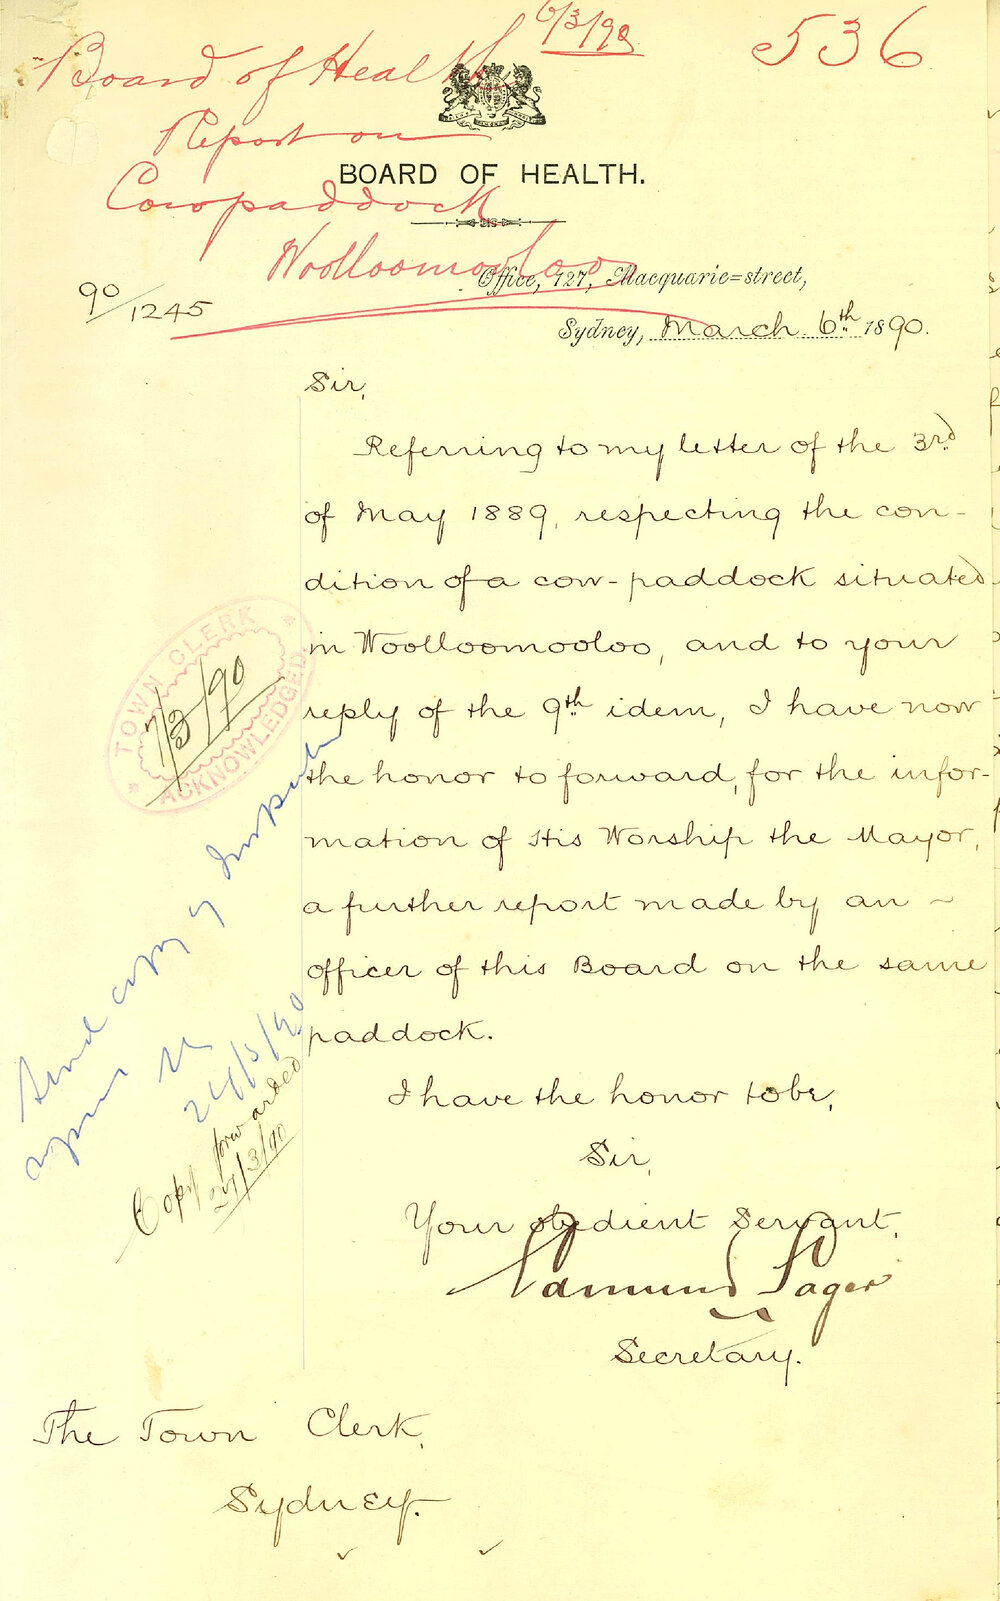 6/3/90
536
Board of Health
Report on
Cowpaddock
Woolloomooloo
BOARD OF HEALTH.
Office, 127, Macquarie=street,
90/1245
Sydney, March 6th 1890.
Sir,
Referring to my letter of the 3rd
of May 1889, respecting the con-
dition of a cow-paddock situated
in Woolloomooloo, and to your
reply of the 9th idem, I have now
the honor to forward, for the infor-
mation of His Worship the Mayor,
a further report made by an ~
officer of this Board on the same
paddock.
I have the honor to be,
Sir,
Your obedient Servant,
Edmund Sager
Secretary.
The Town Clerk,
Sydney.
TOWN CLERK
7/3/90
ACKNOWLEDGED
Send copy of
24/3/90
Copy forwarded
24/3/90